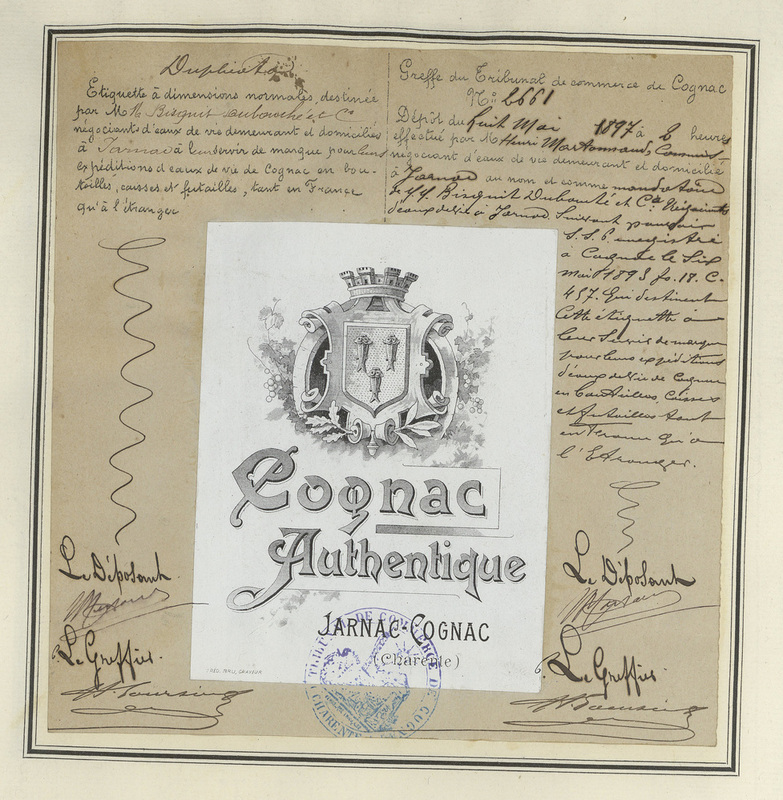 Duplicata
Etiquette à dimensions normales, destinée
par MM Bisquit Dubouché et Cie
négociants d'eaux de vie demeurant et domiciliés
à Jarnac à leur servir de marque pour leurs
expéditions d'eaux de vie de Cognac en bou-
teilles, caisses et futailles, tant en France
qu'à l'étranger
Greffe du Tribunal de commerce de Cognac
No: 2661
Dépôt du huit Mai 1897 à 2 heures
effectué par M. Henri
négociant d'eaux de vie demeurant et domicilié
à Jarnac au nom et comme mandataire
de Bisquit Dubouché et Cie Négociants
d'eaux de vie à Jarnac, Suivant pouvoir
S.S.P. enregistré
à Cognac le Six
mai 1893 fo. 17. C.
457. Qui destinent
cette étiquette à
leur Servir de marque
pour leurs expéditions
d'eaux de vie de Cognac
en bouteilles, Caisses
et futailles tant
en France qu'à
l'Etranger.
Cognac
Authentique
JARNAC-COGNAC
(Charente)
Le Déposant
Le Greffier
Le Déposant
Le Greffier
TRIBUNAL DE COMMERCE DE COGNAC
CHARENTE